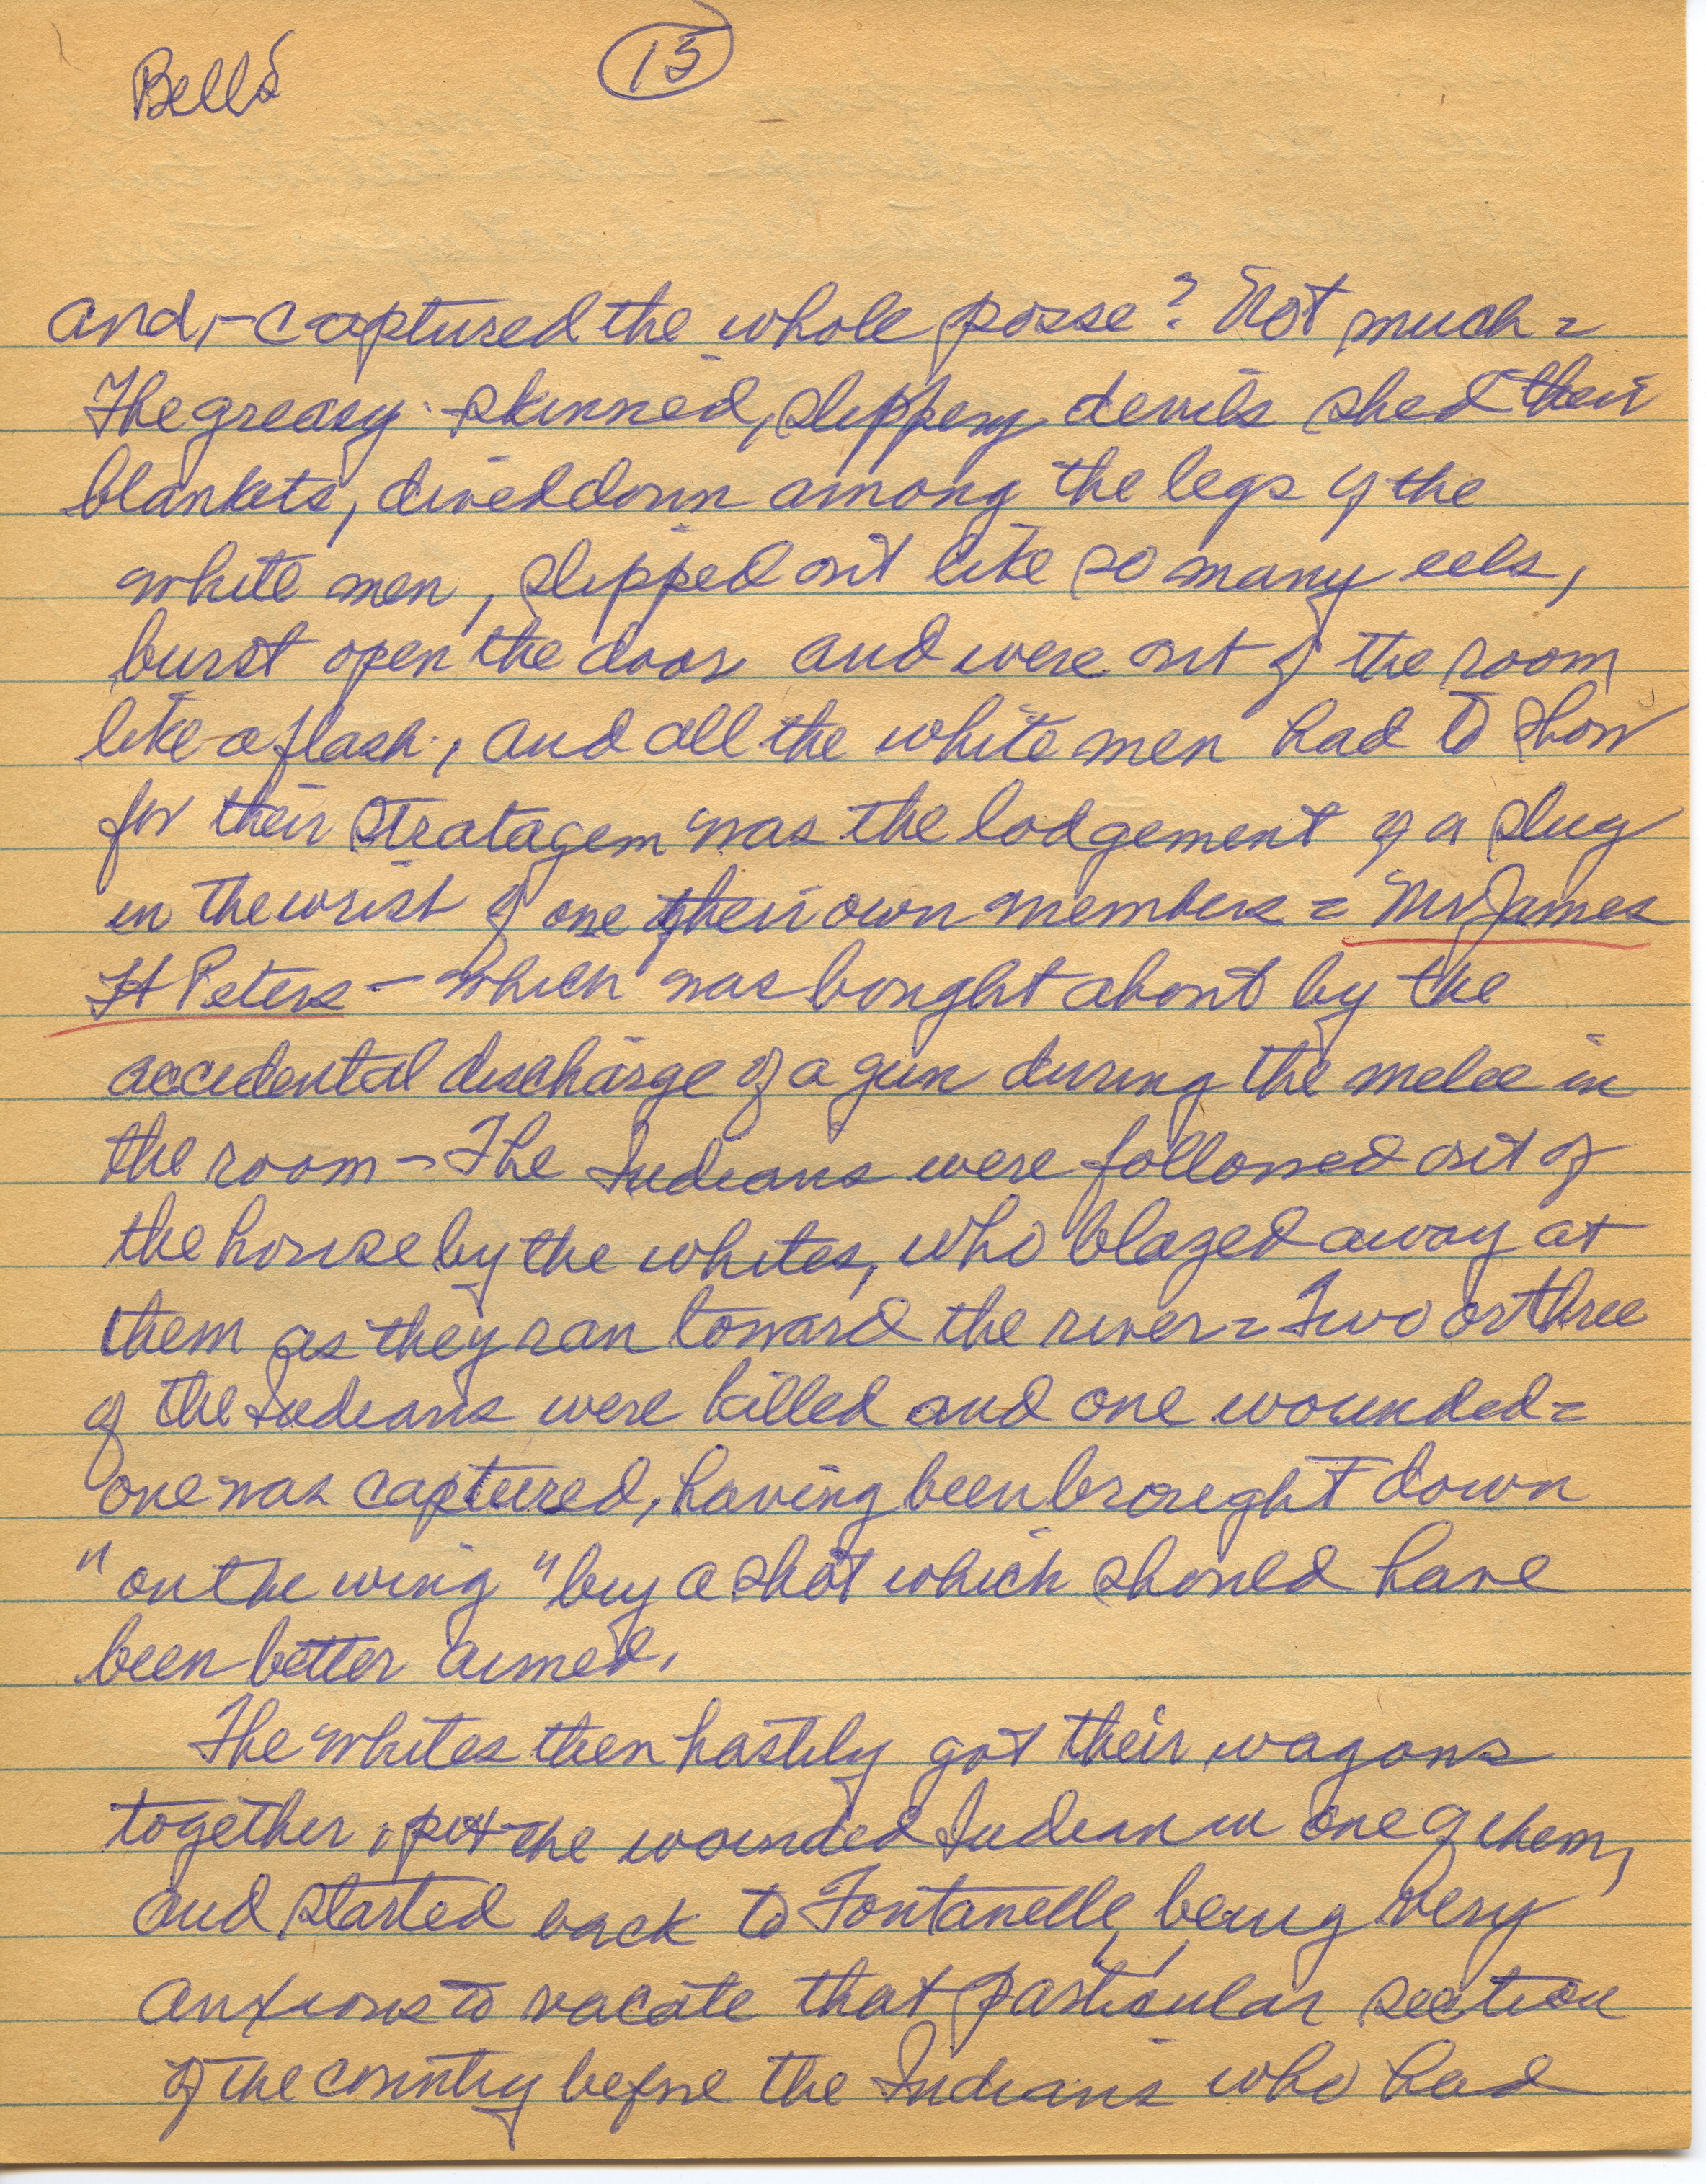 Bells
15
and, - captured the whole posse? Not much =
The greasy - skinned, slippery devils shed their
blankets, dived down among the legs of the
white men, slipped out like so many eels,
burst open the door and were out of the room
like a flash, and all the white men had to show
for their stratagem was the lodgement of a slug
in the wrist of one of their own members = Mr James
H Peters - which was bought about by the
accidental discharge of a gun during the melee in
the room - The Indians were followed out of
the house by the whites, who blazed away at
them as they ran toward the river = Two or three
of the Indians were killed and one wounded =
one was captured, having been brought down
"on the wing" by a shot which should have
been better aimed.
The whites then hastily got their wagons
together, put the wounded Indian in one of them,
and started back to Fontanelle, being very
anxious to vacate that particular section
of the country before the Indians who had